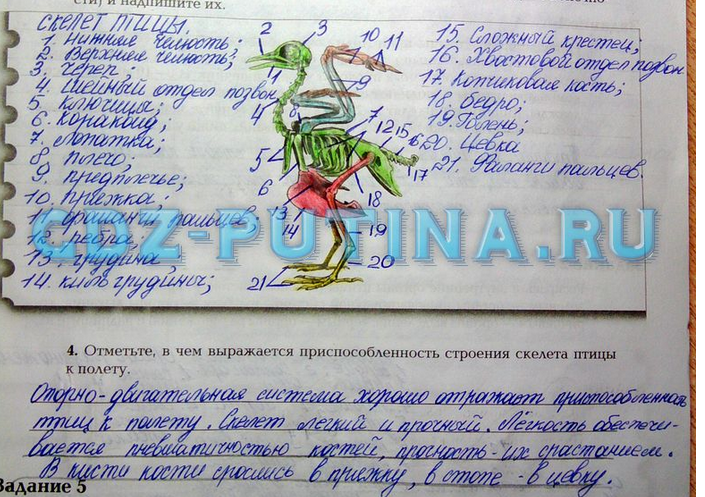 сти) и надпишите их.
СКЕЛЕТ ПТИЦЫ.
1. Нижняя челюсть;
2. Верхняя челюсть;
3. Череп;
4. Шейный отдел позвон.
5. Ключицы;
6. Коракоид;
7. Лопатка;
8. Плечо;
9. Предплечье;
10. Пряжка;
11. Фаланги пальцев
12. Ребра;
13. Грудина
14. Киль грудины;
15. Сложный крестец;
16. Хвостовой отдел позвон
17 Копчиковая кость;
18. Бедро;
19. Голень;
20. Цевка
21. Фаланги пальцев.
2 3 10 11
1 9
4 8
7
12 15
16
17
5
6
18
13
14
19
20
21
GDZ-PUTINA.RU
4. Отметьте, в чем выражается приспособленность строения скелета птицы
к полету.
Опорно-двигательная система хорошо отражает приспособленность
птиц к полету. Скелет легкий и прочный. Лёгкость обеспечи-
вается пневматичностью костей, прочность - их срастанием.
В кисти кости срослись в пряжку, в стопе - в цевку.
Задание 5